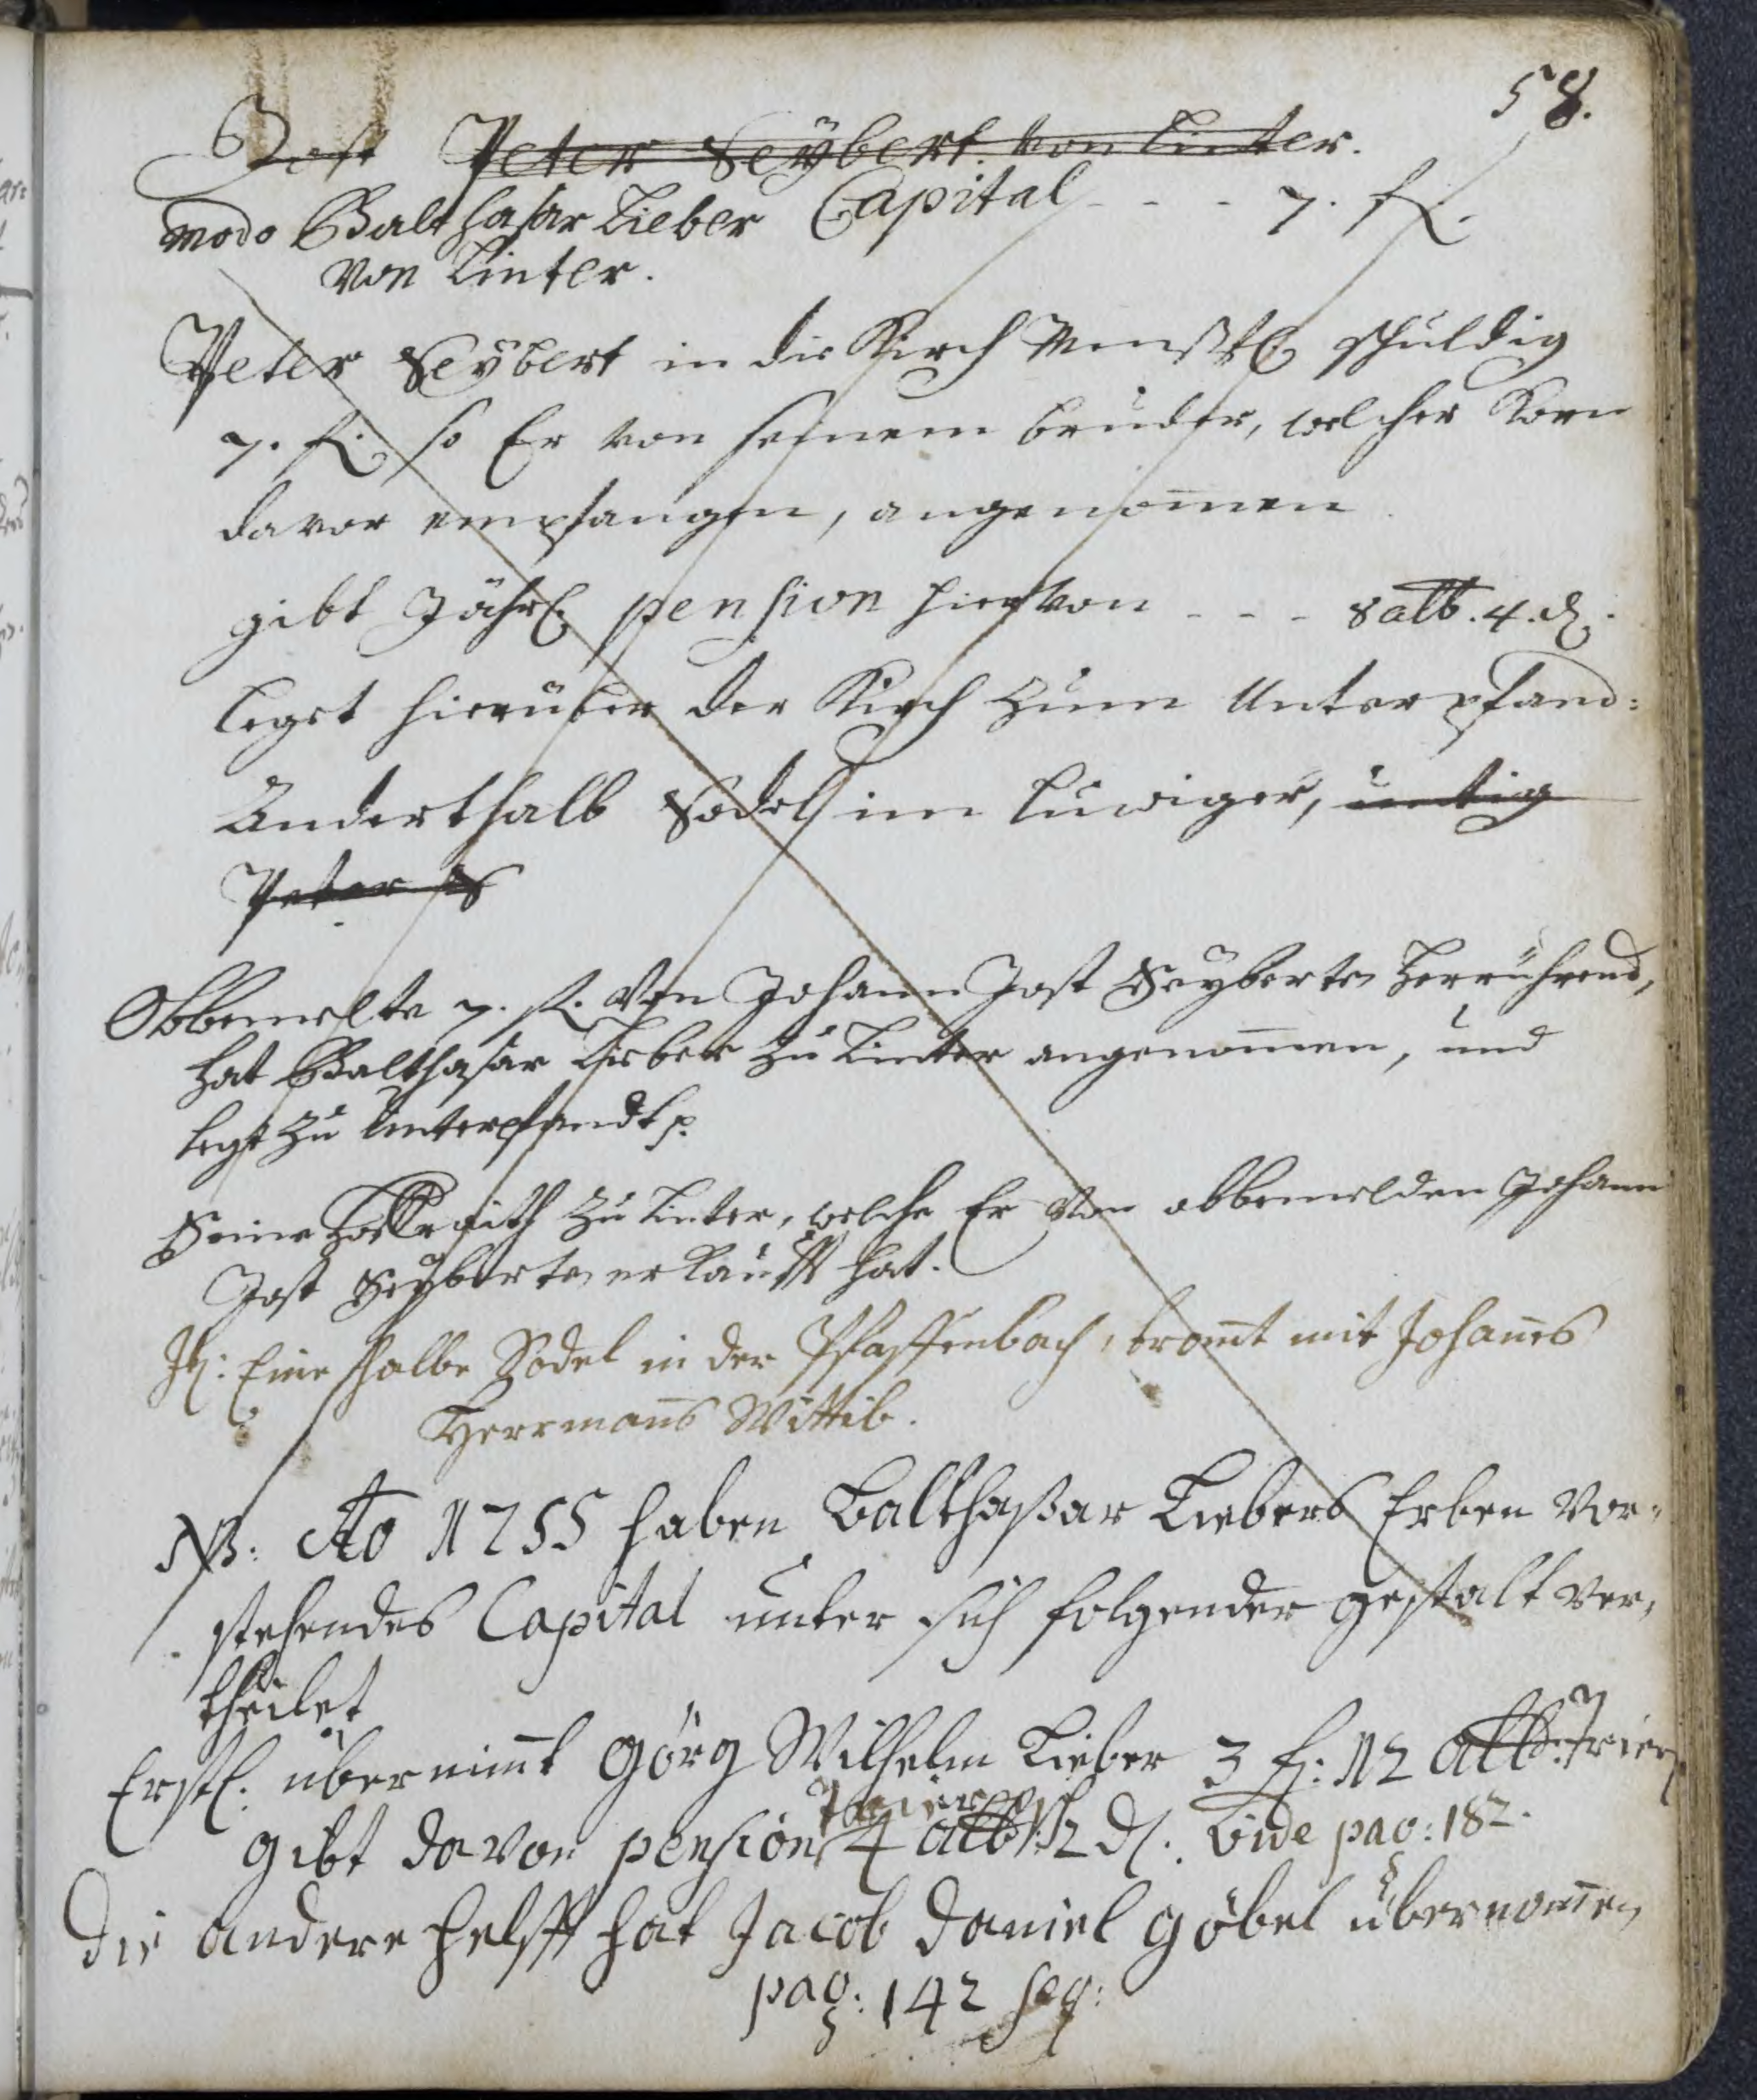 58.
Jost Peter Seÿbert von Linter.
modo Balthasar Lieber Capital - - - 7. fl.
von Linter.
Peter Seÿbert in die Kirch schuldig
7. fl. so Er von seinem bruder, welcher Korn
davor empfangen, angenom̄en
gibt Jährl. pension hiervon - - - 8 alb. 4. d.
Leget hierüber der Kirch zum Unterpfand:
Anderthalb Sodel im Luwiger,
Peter
Obbemelte 7. fl. von Johann Jost Seyberten herrührend,
hat Balthasar Lieber zu Linter angenom̄en, und
legt zu Unterpfandt p.
Seine Hoffraith zu Linter, welche Er von obbemelden Johann
Jost Seyberten erkaufft hat.
It: Eine halbe Sodel in der Pfaffenbach, kom̄t mit Johan̄es
Herrman̄s Wittib.
NB: Ao 1755 haben Balthaßar Liebers Erben vor-
stehendes Capital unter sich folgender gestalt ver-
theilet
Erstl. übernim̄t Görg Wilhelm Lieber 3 fl: 12 alb: Trier
Trier
gibt davon pension 4 alb: 2 d. Vide pag: 182.
die andere helfft hat Jacob Daniel Göbel übernom̄en
pag: 142 seq: